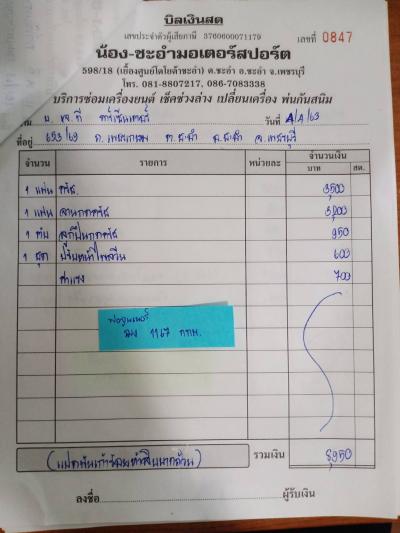 บิลเงินสด
เลขประจำตัวผู้เสียภาษี 3760600071179
เลขที่ 0847
น้อง-ชะอำมอเตอร์สปอร์ต
598/18 (เยื้องศูนย์โตโยต้าชะอำ) ต.ชะอำ อ.ชะอำ จ.เพชรบุรี
โทร. 081-8807217, 086-7083338
บริการซ่อมเครื่องยนต์ เช็คช่วงล่าง เปลี่ยนเครื่อง พ่นกันสนิม
วันที่ 4/4/63
ที่อยู่ 653/69 ถ. เพชรเกษม ต. ชะอำ อ. ชะอำ จ. เพชรบุรี
จำนวน รายการ หน่วยละ จำนวนเงิน
บาท สต.
1 แผ่น คลัช 3,500
1 แผ่น จานกดคลัช 3,200
1 ตับ ลูกปืนกดคลัช 950
1 ชุด 600
ค่าแรง 700
1167 กทม.
(แปดพันเก้าร้อยห้าสิบบาทถ้วน) รวมเงิน 8,950
ลงชื่อ ผู้รับเงิน